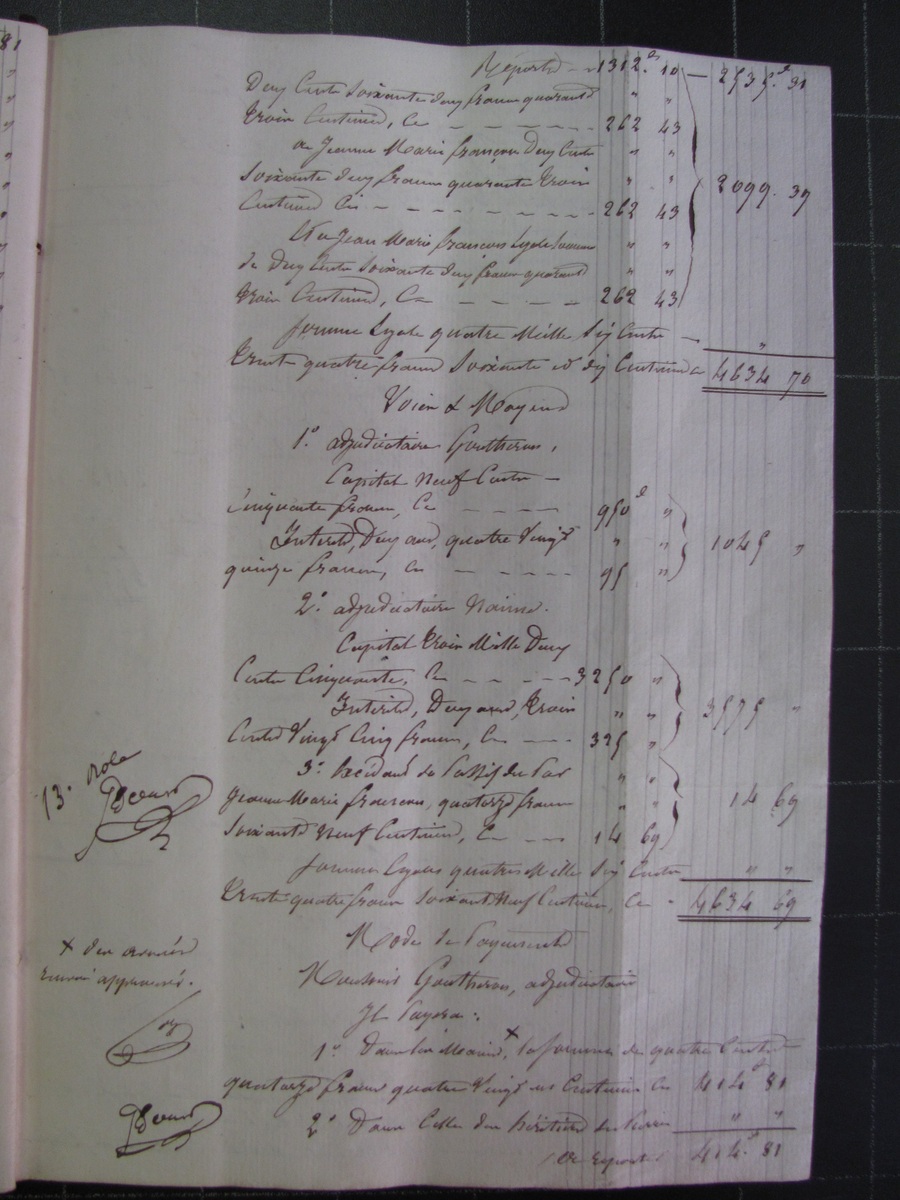 Report — 1312.f 10 — 2535.f 31
Deux Cents Soixante deux francs quarante " "
trois Centimes, Ci — — — 262 43
a Jeanne Marie françoise Deux Cents " "
Soixante deux francs quarante trois " " 2099. 39
Centimes Ci — — — 262 43
Et a Jean Marie françois Egale Somme " "
de Deux Cents Soixante deux francs quarante " "
trois Centimes, Ci — — — 262 43
Somme Egale quatre Mille Six Cents — "
trente quatre francs Soixante et dix Centimes Ci 4634 70
Voies & Moyens
1.° adjudicataire Goutheron,
Capital Neuf Cents —
Cinquante francs, Ci — — — 950.f "
Interets, Deux ans, quatre Vingt " " 1045 "
quinze francs, Ci — — — 95 "
2.° adjudicataire
Capital trois Mille Deux
Cents Cinquante, Ci — — — 3250 "
Interets, Deux ans, trois " " 3575 "
Cents Vingt Cinq francs, Ci — — 325 "
3.° Excédant du Passif du Par " "
Jeanne Marie quatorze francs " " 14 69
Soixante Neuf Centimes, Ci — — 14 69
Somme Egale quatre Mille Six Cents " "
trente quatre francs Soixante Neuf Centimes, Ci - 4634 69
13.e role
Mode de Payement
X des
approuvés.
Goutheron, adjudicataire
Il Payera :
1.° X, la somme de quatre Cents
quatorze francs quatre Vingt un Centimes Ci 414.f 81
2.° Dans Celle des héritiers " "
a Reporter 414.f 81